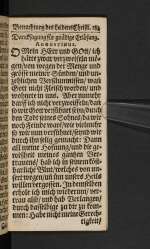 Betrachtung des Leidens Christi. 183
Dancksagung für gnädige Erlösung.
AUGUSTINUS.
O Mein HErr und GOtt / ich
hätte zwar verzweifeln mö-
gen / von wegen der Menge und
grösse meiner Sünden / und un-
zehlichen Versäumnissen / wann
Gott nicht Fleisch worden / und
wohnete in uns. Aber nunmehr
darff ich nicht verzweifeln / dann
so wir Gott versöhnet sind / durch
den Todt seines Sohns / da wir
noch Feinde waren / wie vielmehr
so wir nun versöhnet / seynd wir
durch ihn selig gemacht: Dann
all meine Hoffnung / und die ge-
wißheit meines gantzen Ver-
trauens / hab ich in seinem kost-
barlichen Blut / welches von un-
sert wegen / und um unsers Heils
willen vergossen. In demselben
erhole ich mich wiederum / ver-
traue auf / und hab Verlangen /
durch dasselbige zu dir zu kom-
men: Habe nicht meine Gerech-
tigkeit /